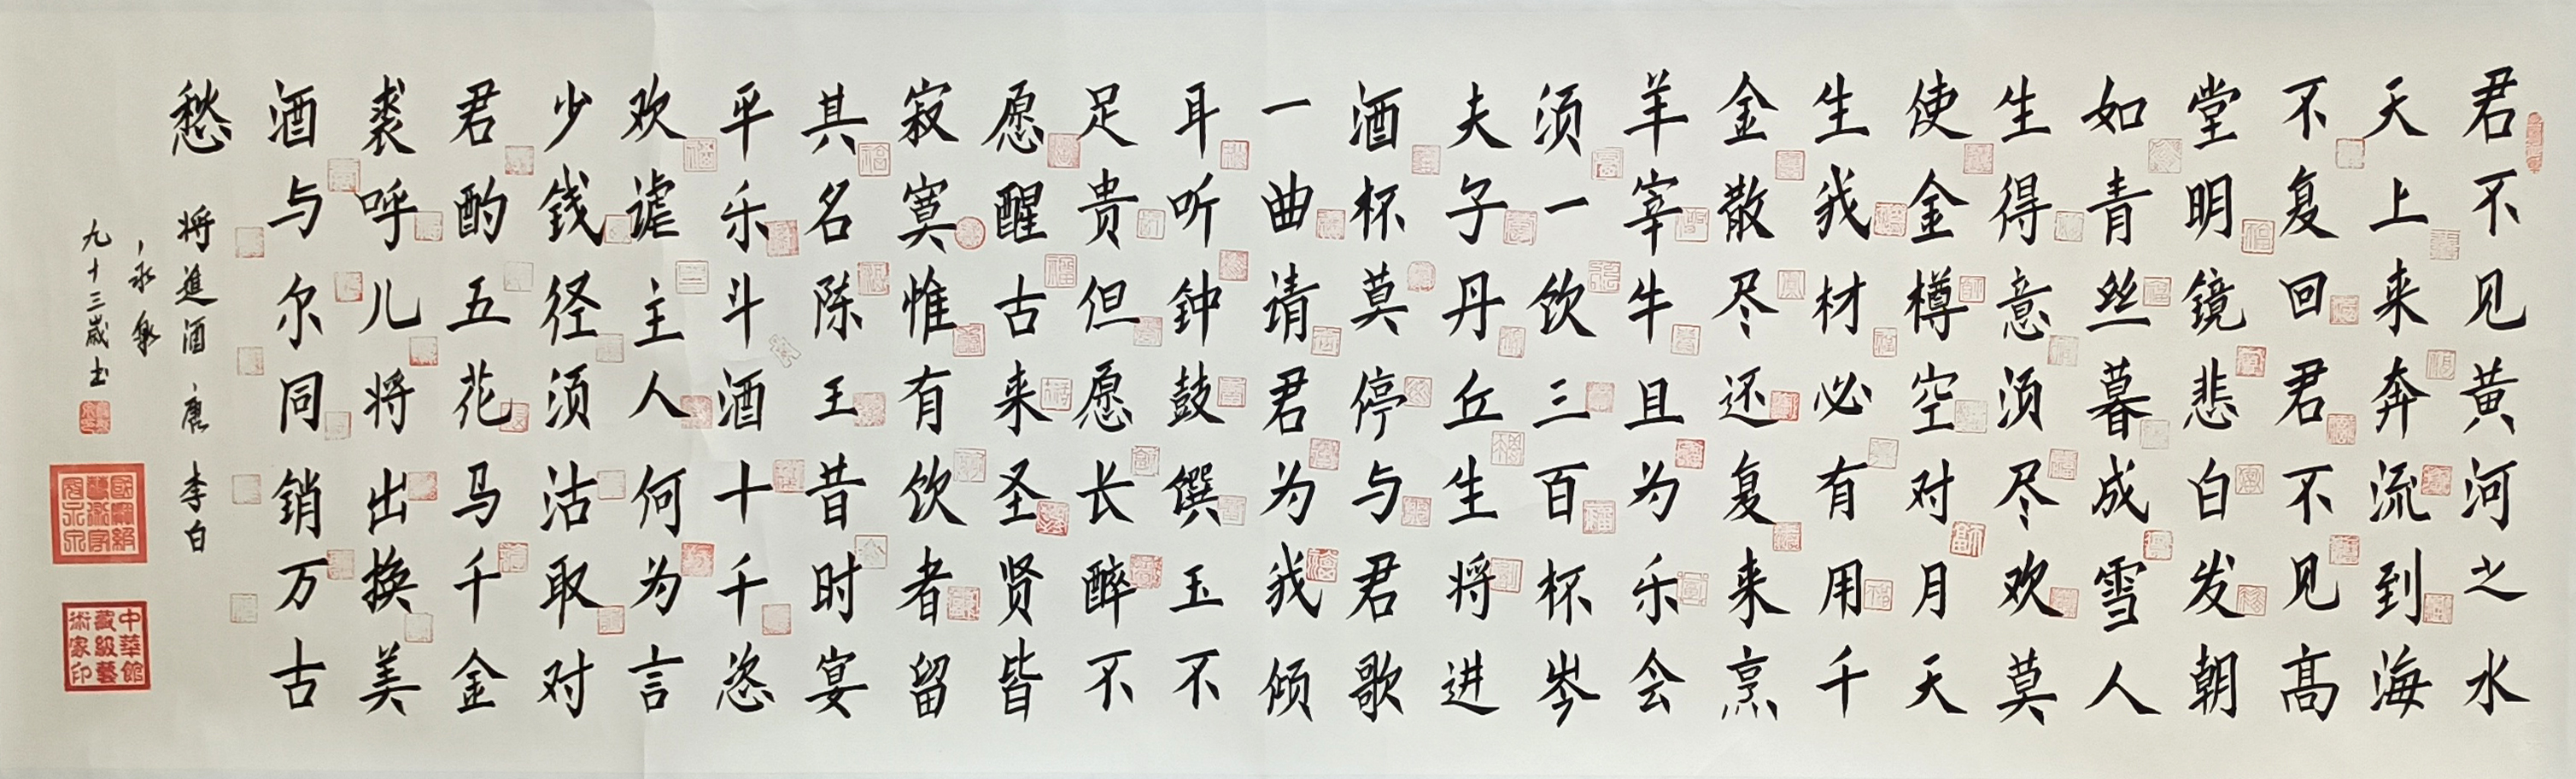 君不见黄河之水
天上来奔流到海
不复回君不见高
堂明镜悲白发朝
如青丝暮成雪人
生得意须尽欢莫
使金樽空对月天
生我材必有用千
金散尽还复来烹
羊宰牛且为乐会
须一饮三百杯岑
夫子丹丘生将进
酒杯莫停与君歌
一曲请君为我倾
耳听钟鼓馔玉不
足贵但愿长醉不
愿醒古来圣贤皆
寂寞惟有饮者留
其名陈王昔时宴
平乐斗酒十千恣
欢谑主人何为言
少钱径须沽取对
君酌五花马千金
裘呼儿将出换美
酒与尔同销万古
愁 将進酒 唐 李白
永泉
九十三歲书
中華館藏級藝術家印